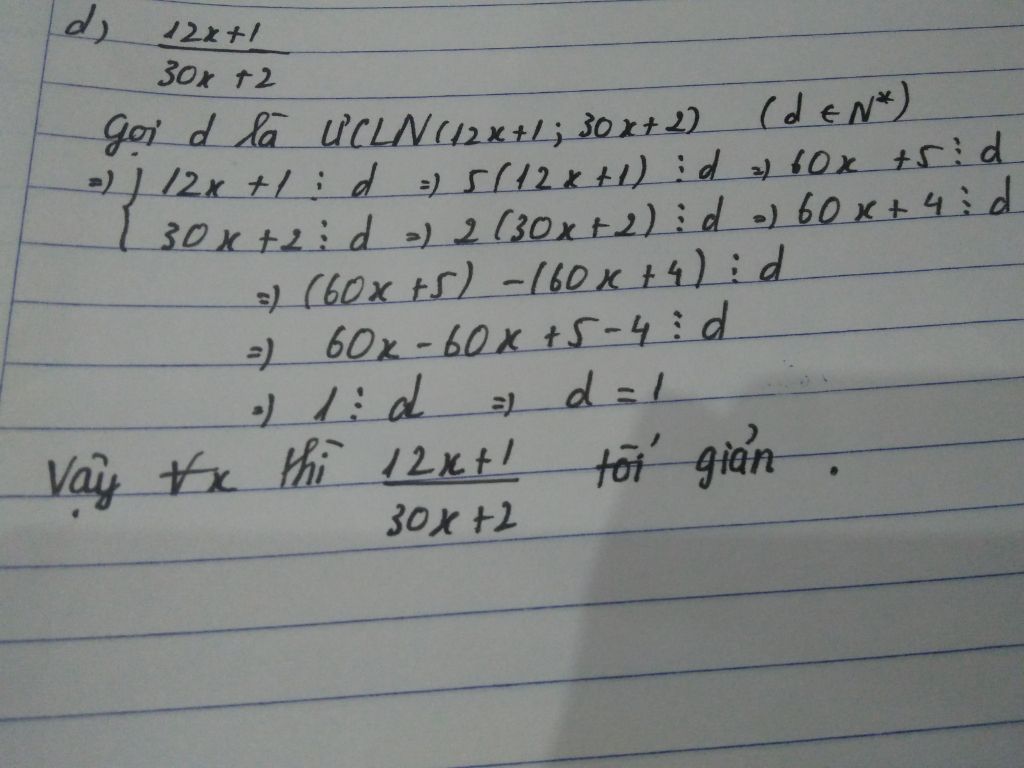 d) 12x+1
30x+2
Gọi d là ƯCLN(12x+1; 30x+2) (d ∈ N*)
=> { 12x+1 ⋮ d => 5(12x+1) ⋮ d => 60x+5 ⋮ d
30x+2 ⋮ d => 2(30x+2) ⋮ d => 60x+4 ⋮ d
=> (60x+5) -(60x+4) ⋮ d
=> 60x-60x+5-4 ⋮ d
=> 1 ⋮ d => d = 1
Vậy ∀x thì 12x+1 tối giản .
30x+2